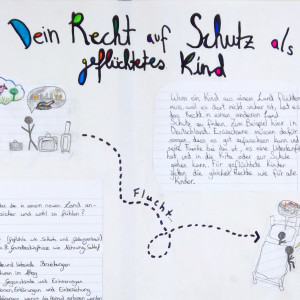 Dein Recht auf Schutz als
geflüchtetes Kind
Wenn ein Kind aus einem Land flüchten
muss, weil es dort nicht sicher ist, hat es
das Recht in einem anderen Land
Schutz zu finden. Zum Beispiel hier in
Deutschland. Erwachsene müssen dafür
sorgen, dass es gut aufwachsen kann und
seine Familie bei ihm ist, es eine Unterkunft
hat, und in die Kita oder zur Schule
gehen kann. Für geflüchtete Kinder
gelten die gleichen Rechte wie für alle
Kinder.
Flucht
in einem neuen Land
sicher und wohl zu fühlen?
wie Schule und
Grundbedürfnisse wie Nahrung, Schlaf
und liebevolle Beziehungen
im Alltag
Gegenstände und Erinnerungen